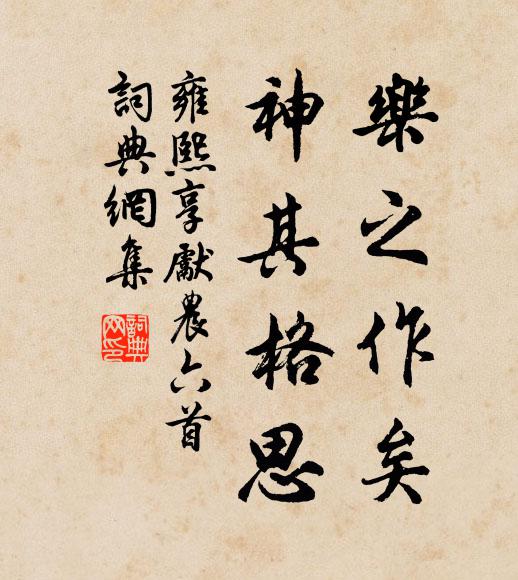 樂之作矣
神其格思
雍熙享獻農六首
詞典網集
詞典
网印